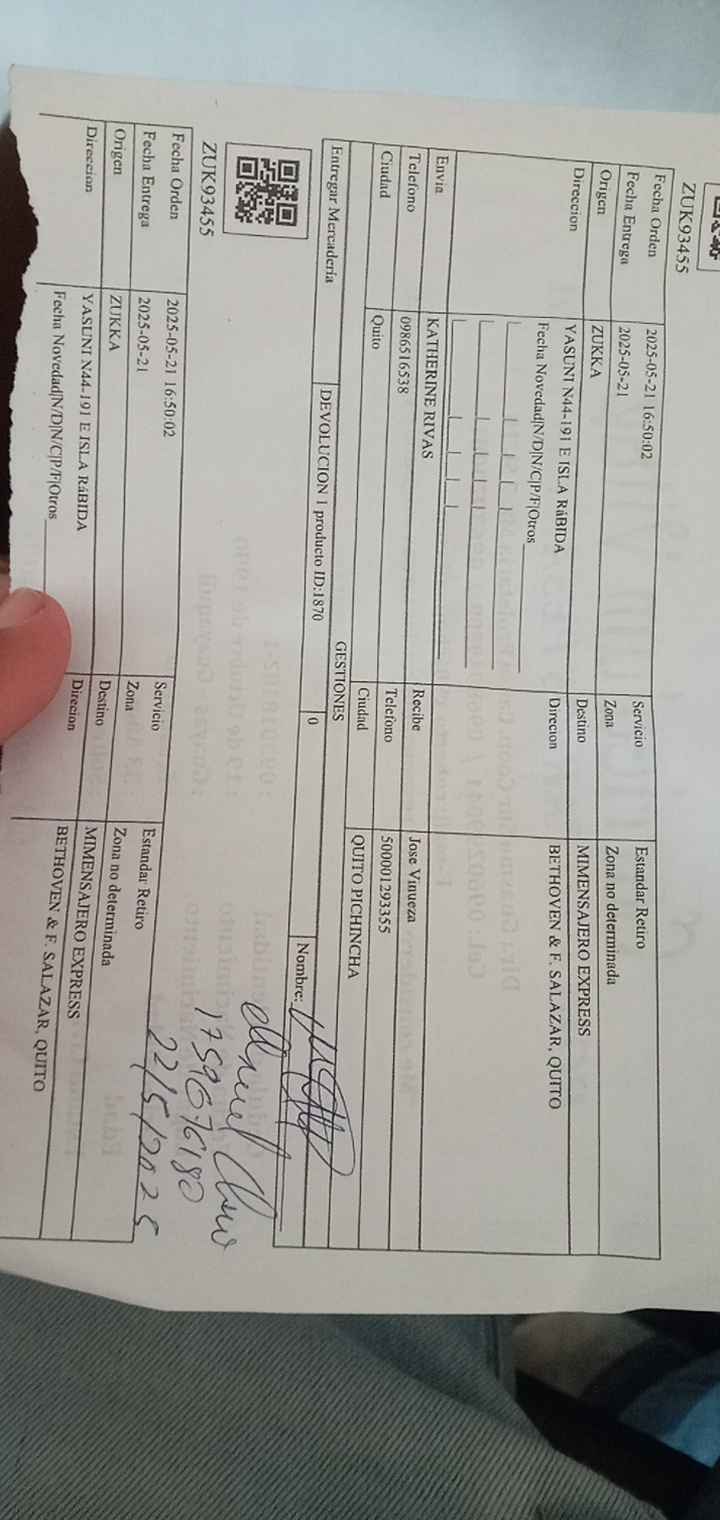 ZUK93455
Fecha Orden 2025-05-21 16:50:02 Servicio Estandar Retiro
Fecha Entrega 2025-05-21 Zona Zona no determinada
Origen ZUKKA Destino MIMENSAJERO EXPRESS
Direccion YASUNI N44-191 E ISLA RáBIDA Direcion BETHOVEN & F. SALAZAR, QUITO
Fecha Novedad|N/D|N/C|P/F|Otros
Envia KATHERINE RIVAS Recibe Jose Vinueza
Telefono 0986516538 Telefono 500001293355
Ciudad Quito Ciudad QUITO PICHINCHA
GESTIONES
Entregar Mercaderia DEVOLUCION 1 producto ID:1870 0
Nombre:
1759676180
22/5/2025
ZUK93455
Fecha Orden 2025-05-21 16:50:02 Servicio Estandar Retiro
Fecha Entrega 2025-05-21 Zona Zona no determinada
Origen ZUKKA Destino MIMENSAJERO EXPRESS
Direccion YASUNI N44-191 E ISLA RáBIDA Direcion BETHOVEN & F. SALAZAR, QUITO
Fecha Novedad|N/D|N/C|P/F|Otros